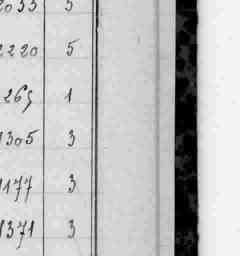 2033 5
2220 5
265 1
1305 3
1177 3
1371 3